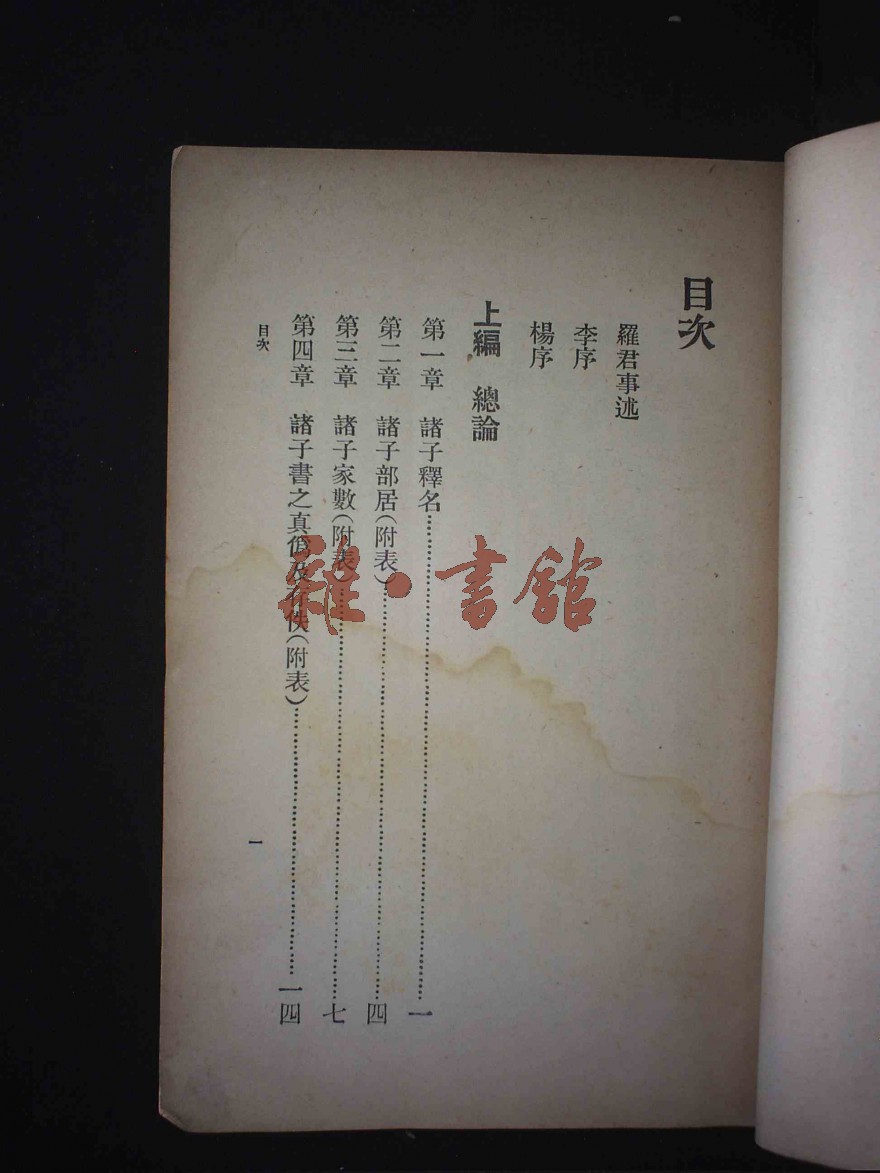 目次
羅君事述
李序
楊序
上編 總論
第一章 諸子釋名……………………一
第二章 諸子部居(附表)……………………四
第三章 諸子家數(附表)……………………七
第四章 諸子書之真僞及存佚(附表)……………………一四
目次
一
雜·書館